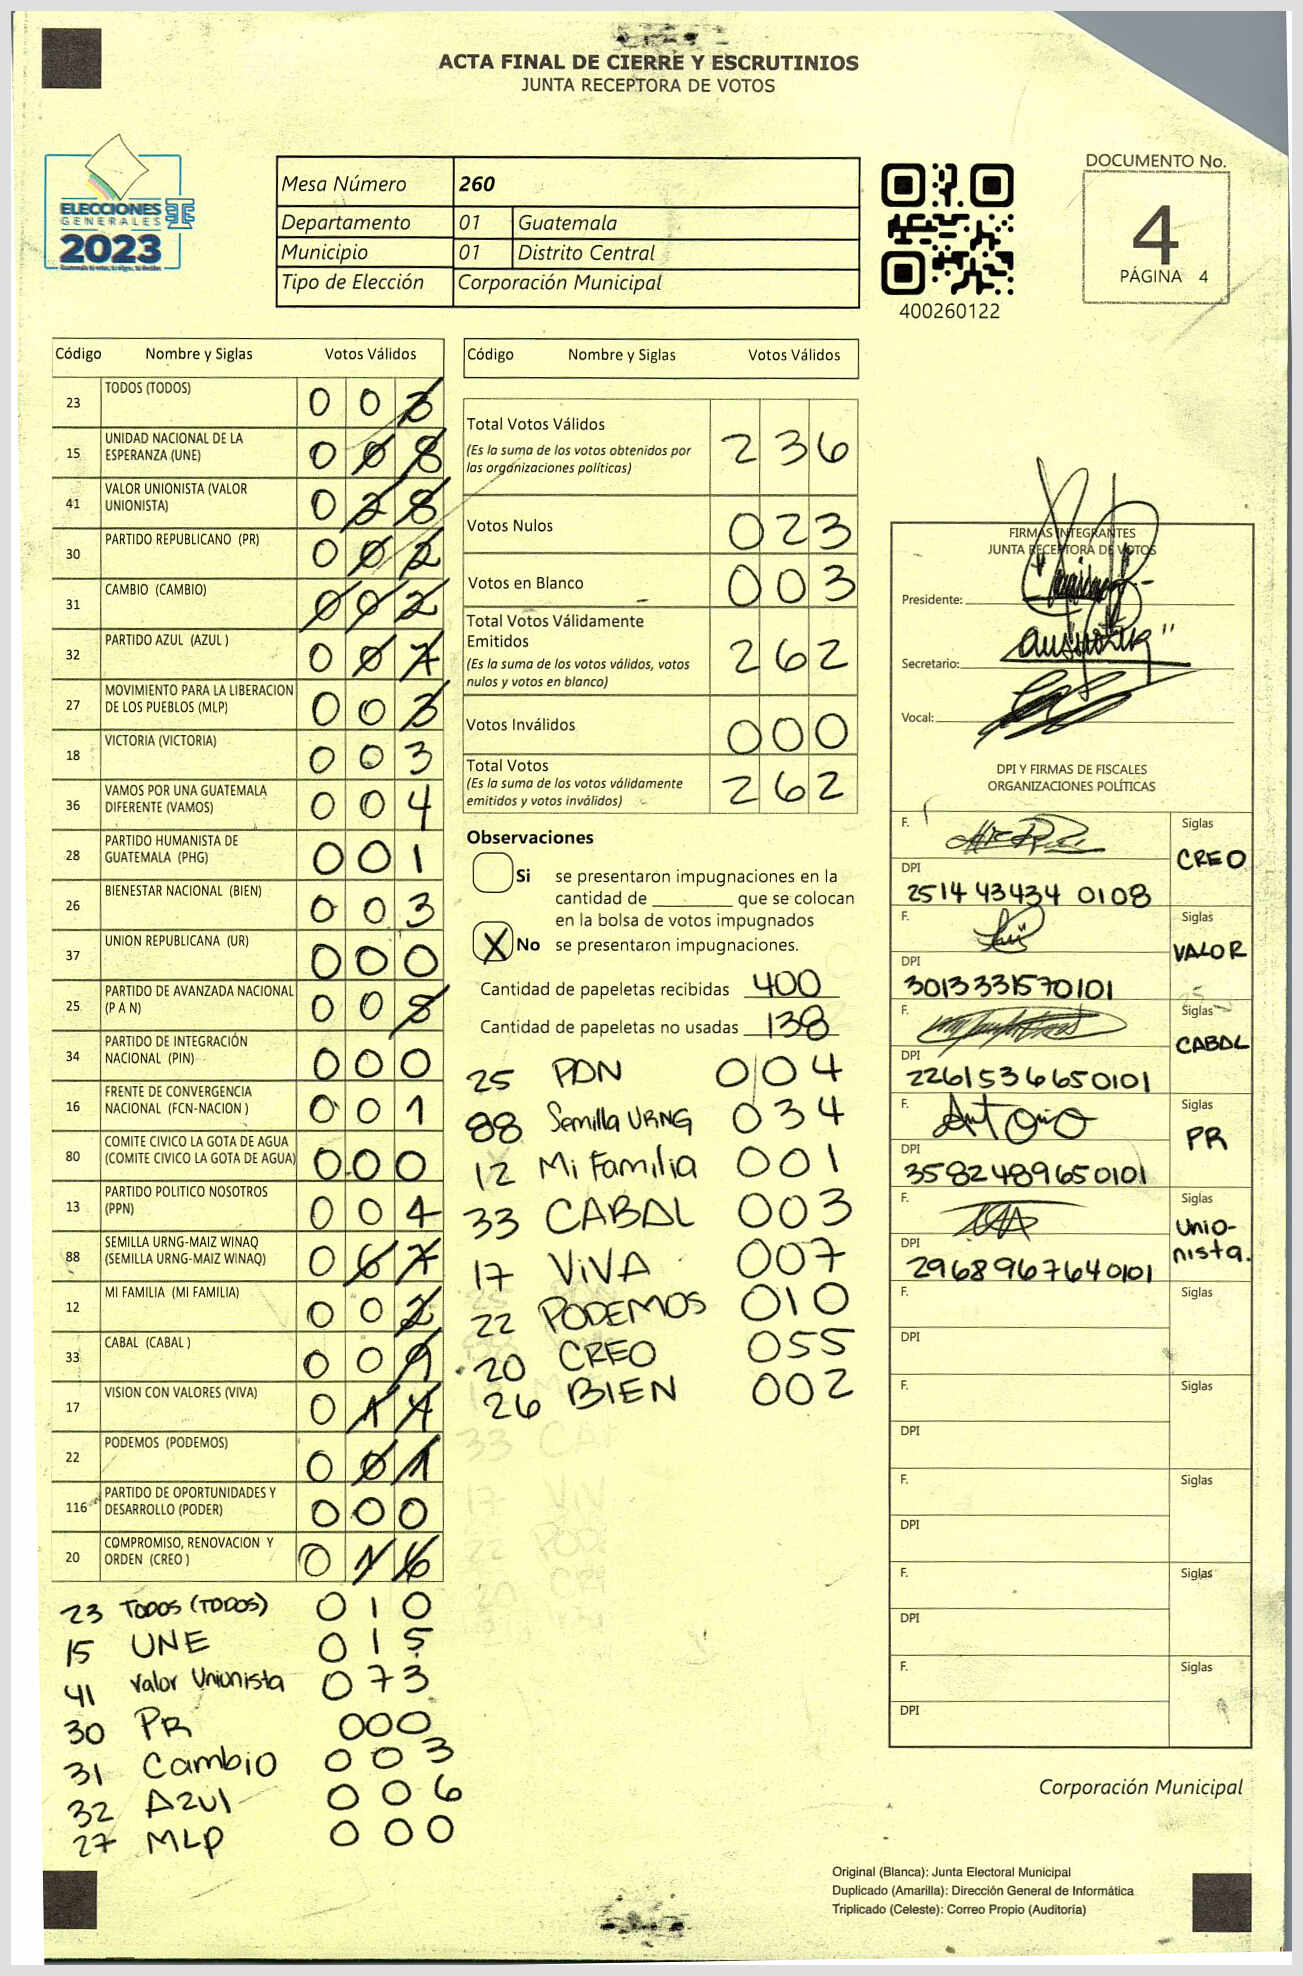 ACTA FINAL DE CIERRE Y ESCRUTINIOS
JUNTA RECEPTORA DE VOTOS
ELECCIONES
GENERALES
2023
Mesa Número 260
Departamento 01 Guatemala
Municipio 01 Distrito Central
Tipo de Elección Corporación Municipal
400260122
DOCUMENTO No.
4
PÁGINA 4
Código Nombre y Siglas Votos Válidos
23 TODOS (TODOS) 0 0 3
15 UNIDAD NACIONAL DE LA
ESPERANZA (UNE) 0 0 8
41 VALOR UNIONISTA (VALOR
UNIONISTA) 0 2 8
30 PARTIDO REPUBLICANO (PR) 0 0 2
31 CAMBIO (CAMBIO) 0 0 2
32 PARTIDO AZUL (AZUL ) 0 0 7
27 MOVIMIENTO PARA LA LIBERACION
DE LOS PUEBLOS (MLP) 0 0 3
18 VICTORIA (VICTORIA) 0 0 3
36 VAMOS POR UNA GUATEMALA
DIFERENTE (VAMOS) 0 0 4
28 PARTIDO HUMANISTA DE
GUATEMALA (PHG) 0 0 1
26 BIENESTAR NACIONAL (BIEN) 0 0 3
37 UNION REPUBLICANA (UR) 0 0 0
25 PARTIDO DE AVANZADA NACIONAL
(P A N) 0 0 8
34 PARTIDO DE INTEGRACIÓN
NACIONAL (PIN) 0 0 0
16 FRENTE DE CONVERGENCIA
NACIONAL (FCN-NACION ) 0 0 1
80 COMITE CIVICO LA GOTA DE AGUA
(COMITE CIVICO LA GOTA DE AGUA) 0 0 0
13 PARTIDO POLITICO NOSOTROS
(PPN) 0 0 4
88 SEMILLA URNG-MAIZ WINAQ
(SEMILLA URNG-MAIZ WINAQ) 0 6 7
12 MI FAMILIA (MI FAMILIA) 0 0 2
33 CABAL (CABAL ) 0 0 9
17 VISION CON VALORES (VIVA) 0 1 4
22 PODEMOS (PODEMOS) 0 0 1
116 PARTIDO DE OPORTUNIDADES Y
DESARROLLO (PODER) 0 0 0
20 COMPROMISO, RENOVACION Y
ORDEN (CREO ) 0 1 6
23 TODOS (TODOS) 0 1 0
15 UNE 0 1 5
41 Valor Unionista 0 7 3
30 PR 000
31 Cambio 0 0 3
32 Azul 0 0 6
27 MLP 0 0 0
Código Nombre y Siglas Votos Válidos
Total Votos Válidos
(Es la suma de los votos obtenidos por
las organizaciones políticas) 2 3 6
Votos Nulos 0 2 3
Votos en Blanco 0 0 3
Total Votos Válidamente
Emitidos
(Es la suma de los votos válidos, votos
nulos y votos en blanco) 2 6 2
Votos Inválidos 0 0 0
Total Votos
(Es la suma de los votos válidamente
emitidos y votos inválidos) 2 6 2
Observaciones
Si se presentaron impugnaciones en la
cantidad de ________ que se colocan
en la bolsa de votos impugnados
X No se presentaron impugnaciones.
Cantidad de papeletas recibidas 400
Cantidad de papeletas no usadas 138
25 PAN 0 0 4
88 Semilla URNG 0 3 4
12 Mi Familia 0 0 1
33 CABAL 0 0 3
17 ViVA 0 0 7
22 PODEMOS 0 1 0
20 CREO 0 5 5
26 BIEN 0 0 2
FIRMAS INTEGRANTES
JUNTA RECEPTORA DE VOTOS
Presidente:
Secretario:
Vocal:
DPI Y FIRMAS DE FISCALES
ORGANIZACIONES POLÍTICAS
F. Siglas
CREO
DPI
2514 43434 0108
F. Siglas
VALOR
DPI
3013331570101
F. Siglas
CABAL
DPI
2261536650101
F. Antonio Siglas
PR
DPI
3582489650101
F. Siglas
Unio-
nista.
DPI
2968967640101
F. Siglas
DPI
F. Siglas
DPI
F. Siglas
DPI
F. Siglas
DPI
F. Siglas
DPI
Corporación Municipal
Original (Blanca): Junta Electoral Municipal
Duplicado (Amarilla): Dirección General de Informática
Triplicado (Celeste): Correo Propio (Auditoría)